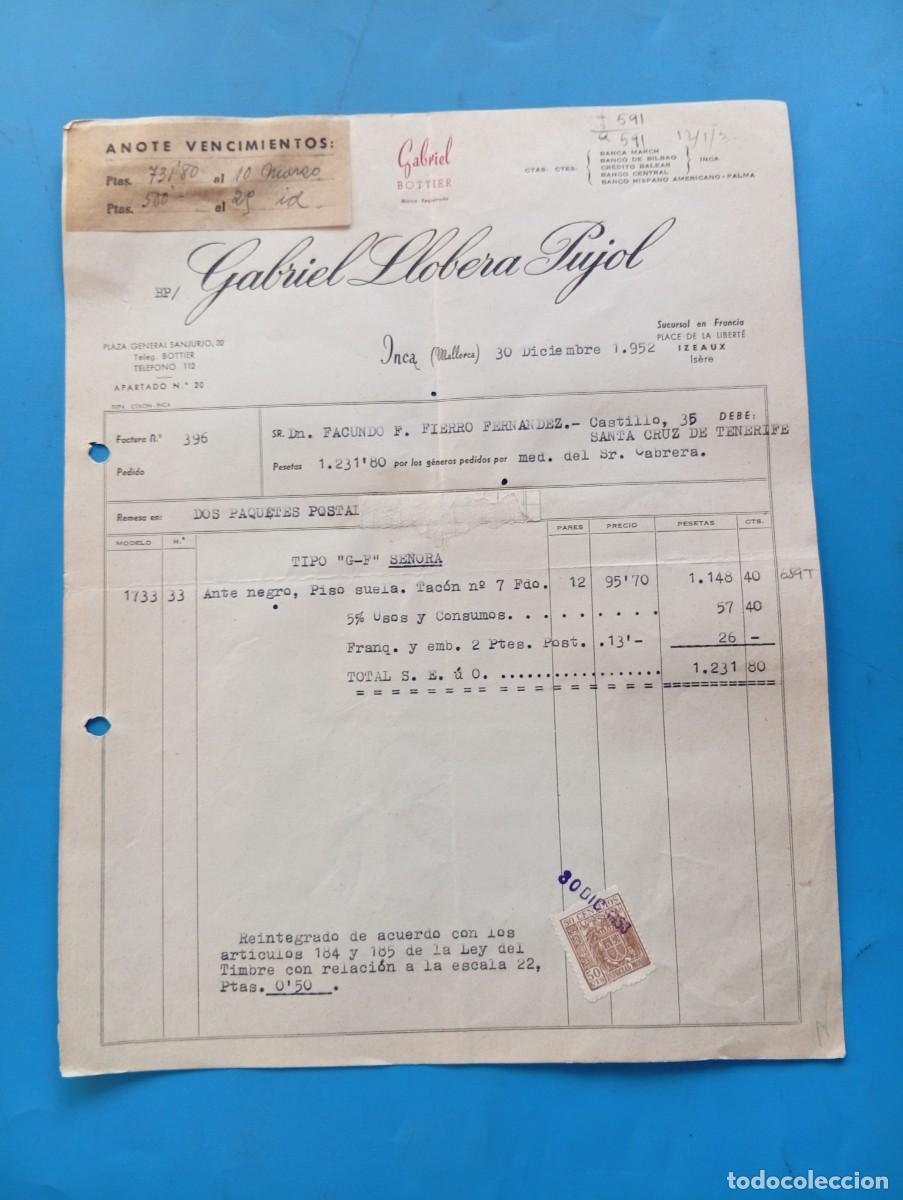 ANOTE VENCIMIENTOS:
Ptas. 731'80 al 10 Marzo
Ptas. 500'- al 25 id
Gabriel
BOTTIER
Marca Registrada
591
591
CTAS. CTES.
BANCA MARCH
BANCO DE BILBAO
CRÉDITO BALEAR
BANCO CENTRAL
BANCO HISPANO AMERICANO - PALMA
INCA
HP/
Gabriel Llobera Pujol
PLAZA GENERAL SANJURJO, 32
Teleg. BOTTIER
TELÉFONO 112
APARTADO N.º 20
Sucursal en Francia
PLACE DE LA LIBERTÉ
IZEAUX
Isère
Inca (Mallorca) 30 Diciembre 1.952
TIP. COLON-INCA
Factura N.º 396
Pedido
SR. Dn. FACUNDO F. FIERRO FERNANDEZ.- Castillo, 35 DEBE:
SANTA CRUZ DE TENERIFE
Pesetas 1.231'80 por los géneros pedidos por med. del Sr. Cabrera.
Remesa en: DOS PAQUETES POSTAL
MODELO N.º PARES PRECIO PESETAS CTS.
TIPO "G-F" SEÑORA
1733 33 Ante negro, Piso suela. Tacón nº 7 Fdo. 12 95'70 1.148 40
5% Usos y Consumos. . . . . . . . . . 57 40
Franq. y emb. 2 Ptes. Post. .13'- 26 -
TOTAL S. E. ú O. .................. 1.231 80
Reintegrado de acuerdo con los
artículos 184 y 185 de la Ley del
Timbre con relación a la escala 22,
Ptas. 0'50 .
30 DIC 1953
50 CENTIMOS
50
CTS
todocoleccion